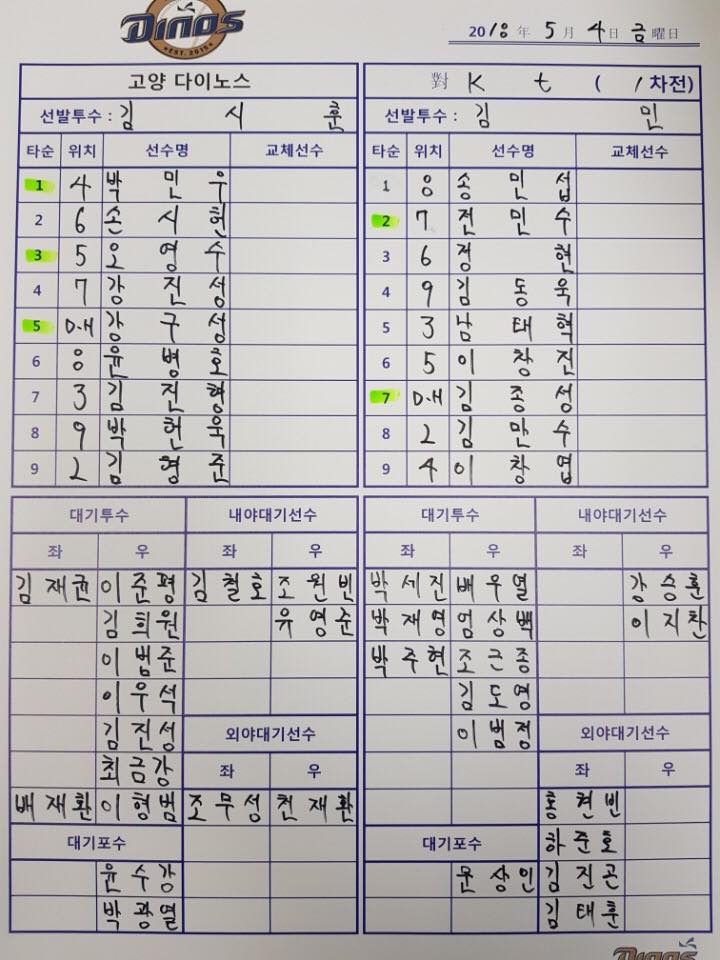 DINOS
EST. 2015
2018 年 5 月 4 日 金 曜日
고양 다이노스
선발투수 : 김 시 훈
타순 위치 선수명 교체선수
1 4 박 민 우
2 6 손 시 헌
3 5 오 영 수
4 7 강 진 성
5 D.H 강 구 성
6 8 윤 병 호
7 3 김 진 형
8 9 박 헌 욱
9 2 김 형 준
對 K t ( 1 차전)
선발투수 : 김 민
타순 위치 선수명 교체선수
1 8 송 민 섭
2 7 전 민 수
3 6 정 현
4 9 김 동 욱
5 3 남 태 혁
6 5 이 창 진
7 D.H 김 종 성
8 2 김 만 수
9 4 이 창 엽
대기투수 내야대기선수
좌 우 좌 우
김재균 이준평 김철호 조원빈
김희원 유영준
이범준
이우석
김진성 외야대기선수
최금강 좌 우
배재환 이형범 조무성 천재환
대기포수
윤수강
박광열
대기투수 내야대기선수
좌 우 좌 우
박세진 배우열 강승훈
박재영 엄상백 이지찬
박주현 조근종
김도영
이범정 외야대기선수
좌 우
홍현빈
대기포수 하준호
문상인 김진곤
김태훈
DINOS